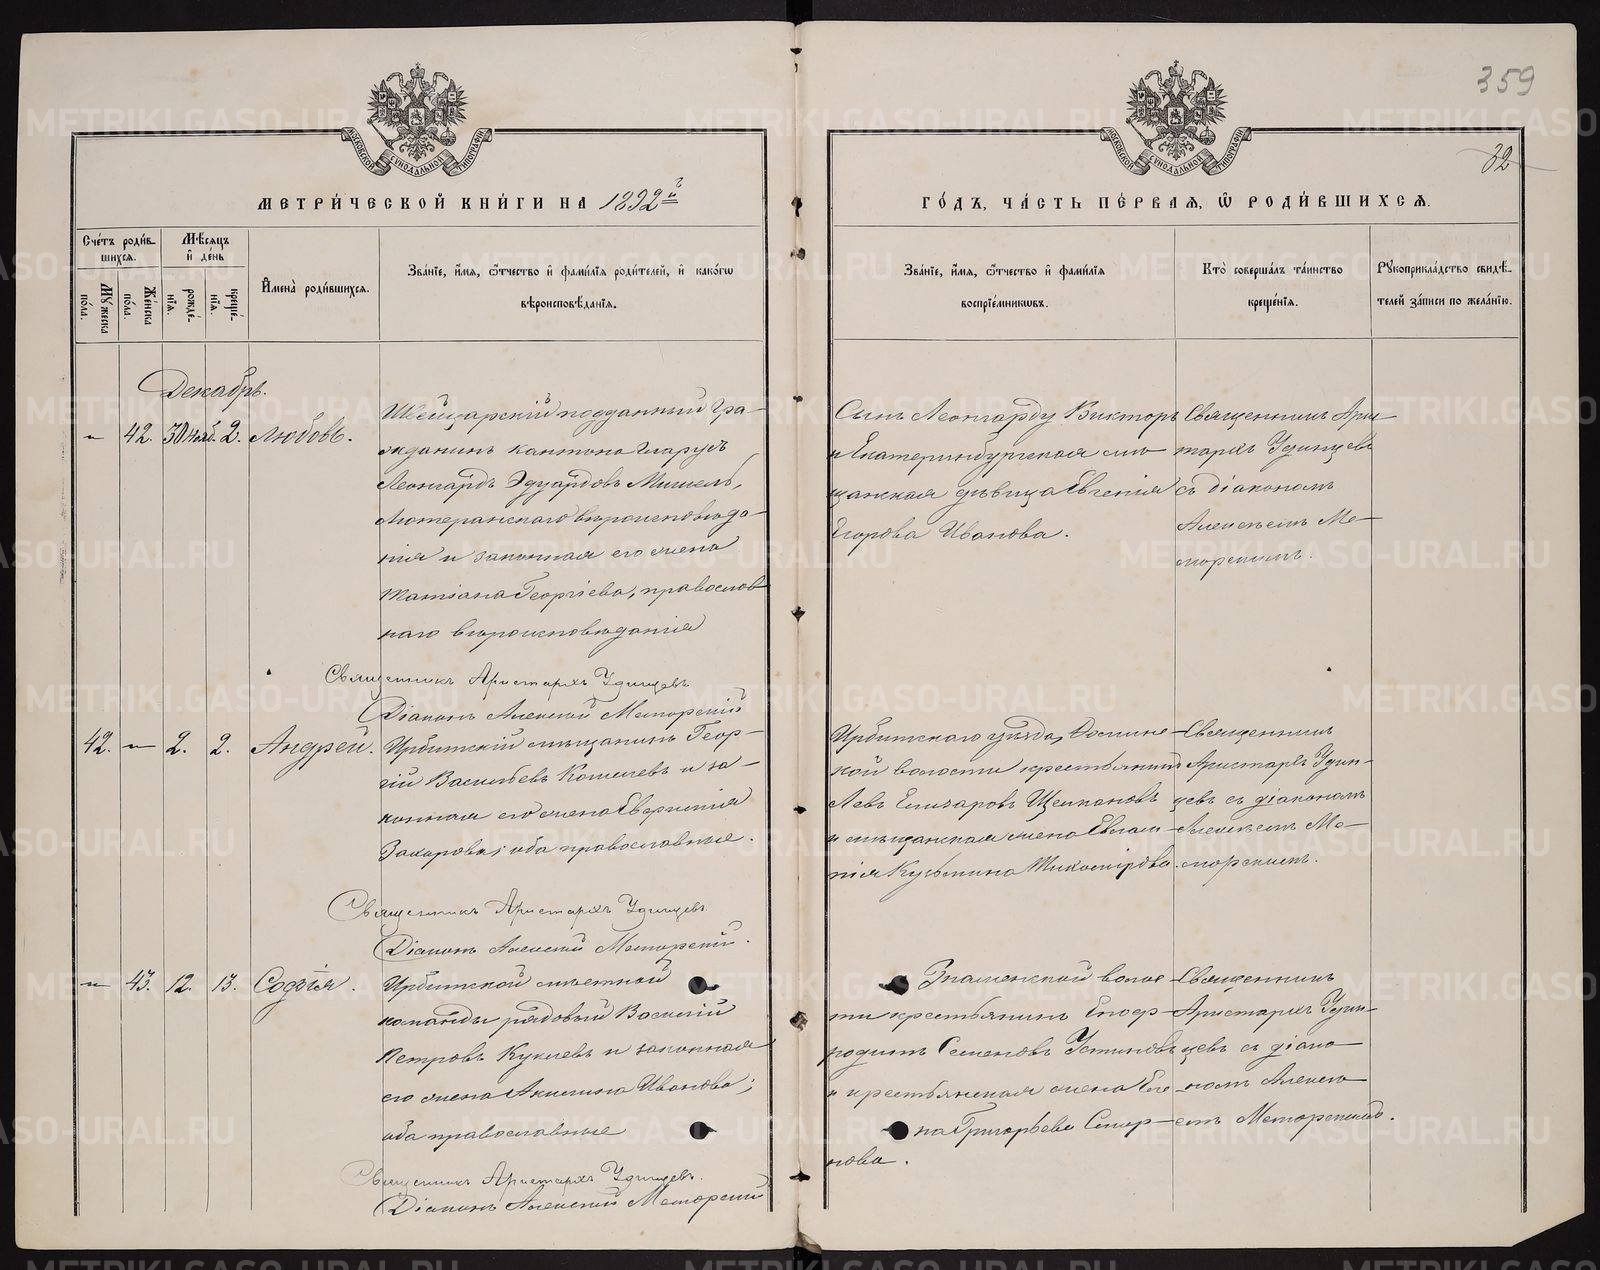 359
32
МОСКОВСКОЙ СѴНОДАЛЬНОЙ ТИПОГРАФІИ
МОСКОВСКОЙ СѴНОДАЛЬНОЙ ТИПОГРАФІИ
МЕТРИ́ЧЕСКОЙ КНИ́ГИ НА 1892й г
ГО́ДЪ, ЧА́СТЬ ПЕ́РВАѦ, Ѿ РОДИ́ВШИХСѦ.
Сче́тъ роди́в-
шихся.
Мѣ́сяцъ
и҆ де́нь
Му́жеска по́ла.
Же́нска по́ла.
рожде́-нїѧ.
креще́-нїѧ.
И҆мена̀ роди́вшихсѧ.
Зва́нїе, и҆́мѧ, ѻ҆́тчество и҆ фами́лїѧ роди́телей, и҆ како́гѡ
вѣроисповѣ́данїѧ.
Зва́нїе, и҆́мѧ, ѻ҆́тчество и҆ фами́лїѧ
воспрїе́мникѡвъ.
Кто̀ соверша́лъ та́инство
креще́нїѧ.
Рꙋкоприкла́дство свидѣ́-
телей за́писи по жела́нїю.
Декабрь.
„ 42. 30 нояб. 2. Любовь.
Швейцарскій подданный гра-
жданинъ кантона Гларусъ
Леонгардъ Эдуардовъ Мишель,
Лютеранскаго вѣроисповѣда-
нія и законная его жена
Татіана Георгіева, православ
наго вѣроисповѣданія
Сынъ Леонгарду Викторъ
и Екатеринбургская мѣ-
щанская дѣвица Евгенія
Егорова Иванова.
Священникъ Ари-
стархъ Удинцевъ
съ діакономъ
Алексѣемъ Ме-
морскимъ.
Священникъ Аристархъ Удинцевъ
Діаконъ Алексій Меморскій
42. „ 2. 2. Андрей.
Ирбитскій мѣщанинъ Геор-
гій Васильевъ Кошелевъ и за-
конная его жена Евгенія
Захарова; оба православные.
Ирбитскаго уѣзда,
кой волости крестьянинъ
Левъ Елизаровъ Щелкановъ
и мѣщанская жена Евгѣ-
нія Кузьмина Тихомірова.
Священникъ
Аристархъ Удин-
цевъ съ діакономъ
Алексѣемъ Ме-
морскимъ.
Священникъ Аристархъ Удинцевъ
Діаконъ Алексій Меморскій.
„ 43. 12. 13. Софія.
Ирбитской мѣстной
команды рядовый Василій
Петровъ Куклевъ и законная
его жена Акилина Иванова;
оба православные
Знаменской волос-
ти крестьянинъ
родитъ Семеновъ Устиновъ
и крестьянская жена Еле
на Григорьева Спир-
нова.
Священникъ
Аристархъ Удин-
цевъ съ діако-
номъ Алексѣ-
емъ Меморскимъ.
Священникъ Аристархъ Удинцевъ.
Діаконъ Алексій Меморскій
METRIKI.GASO-URAL.RU